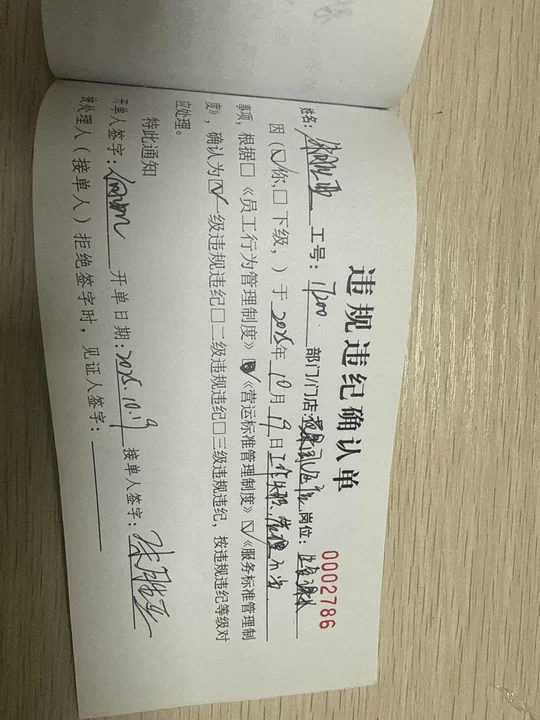 违规违纪确认单
0002786
姓名： 工号： 部门/门店: 岗位：
因（☑你,□下级，）于2025年10月19日工作失职、管理不当
事项，根据□《员工行为管理制度》☑《营运标准管理制度》☑《服务标准管理制
度》，确认为☑一级违规违纪□二级违规违纪□三级违规违纪，按违规违纪等级对
应处理。
特此通知
开单人签字： 开单日期:2025.10.19 接单人签字：
被处理人（接单人）拒绝签字时，见证人签字：